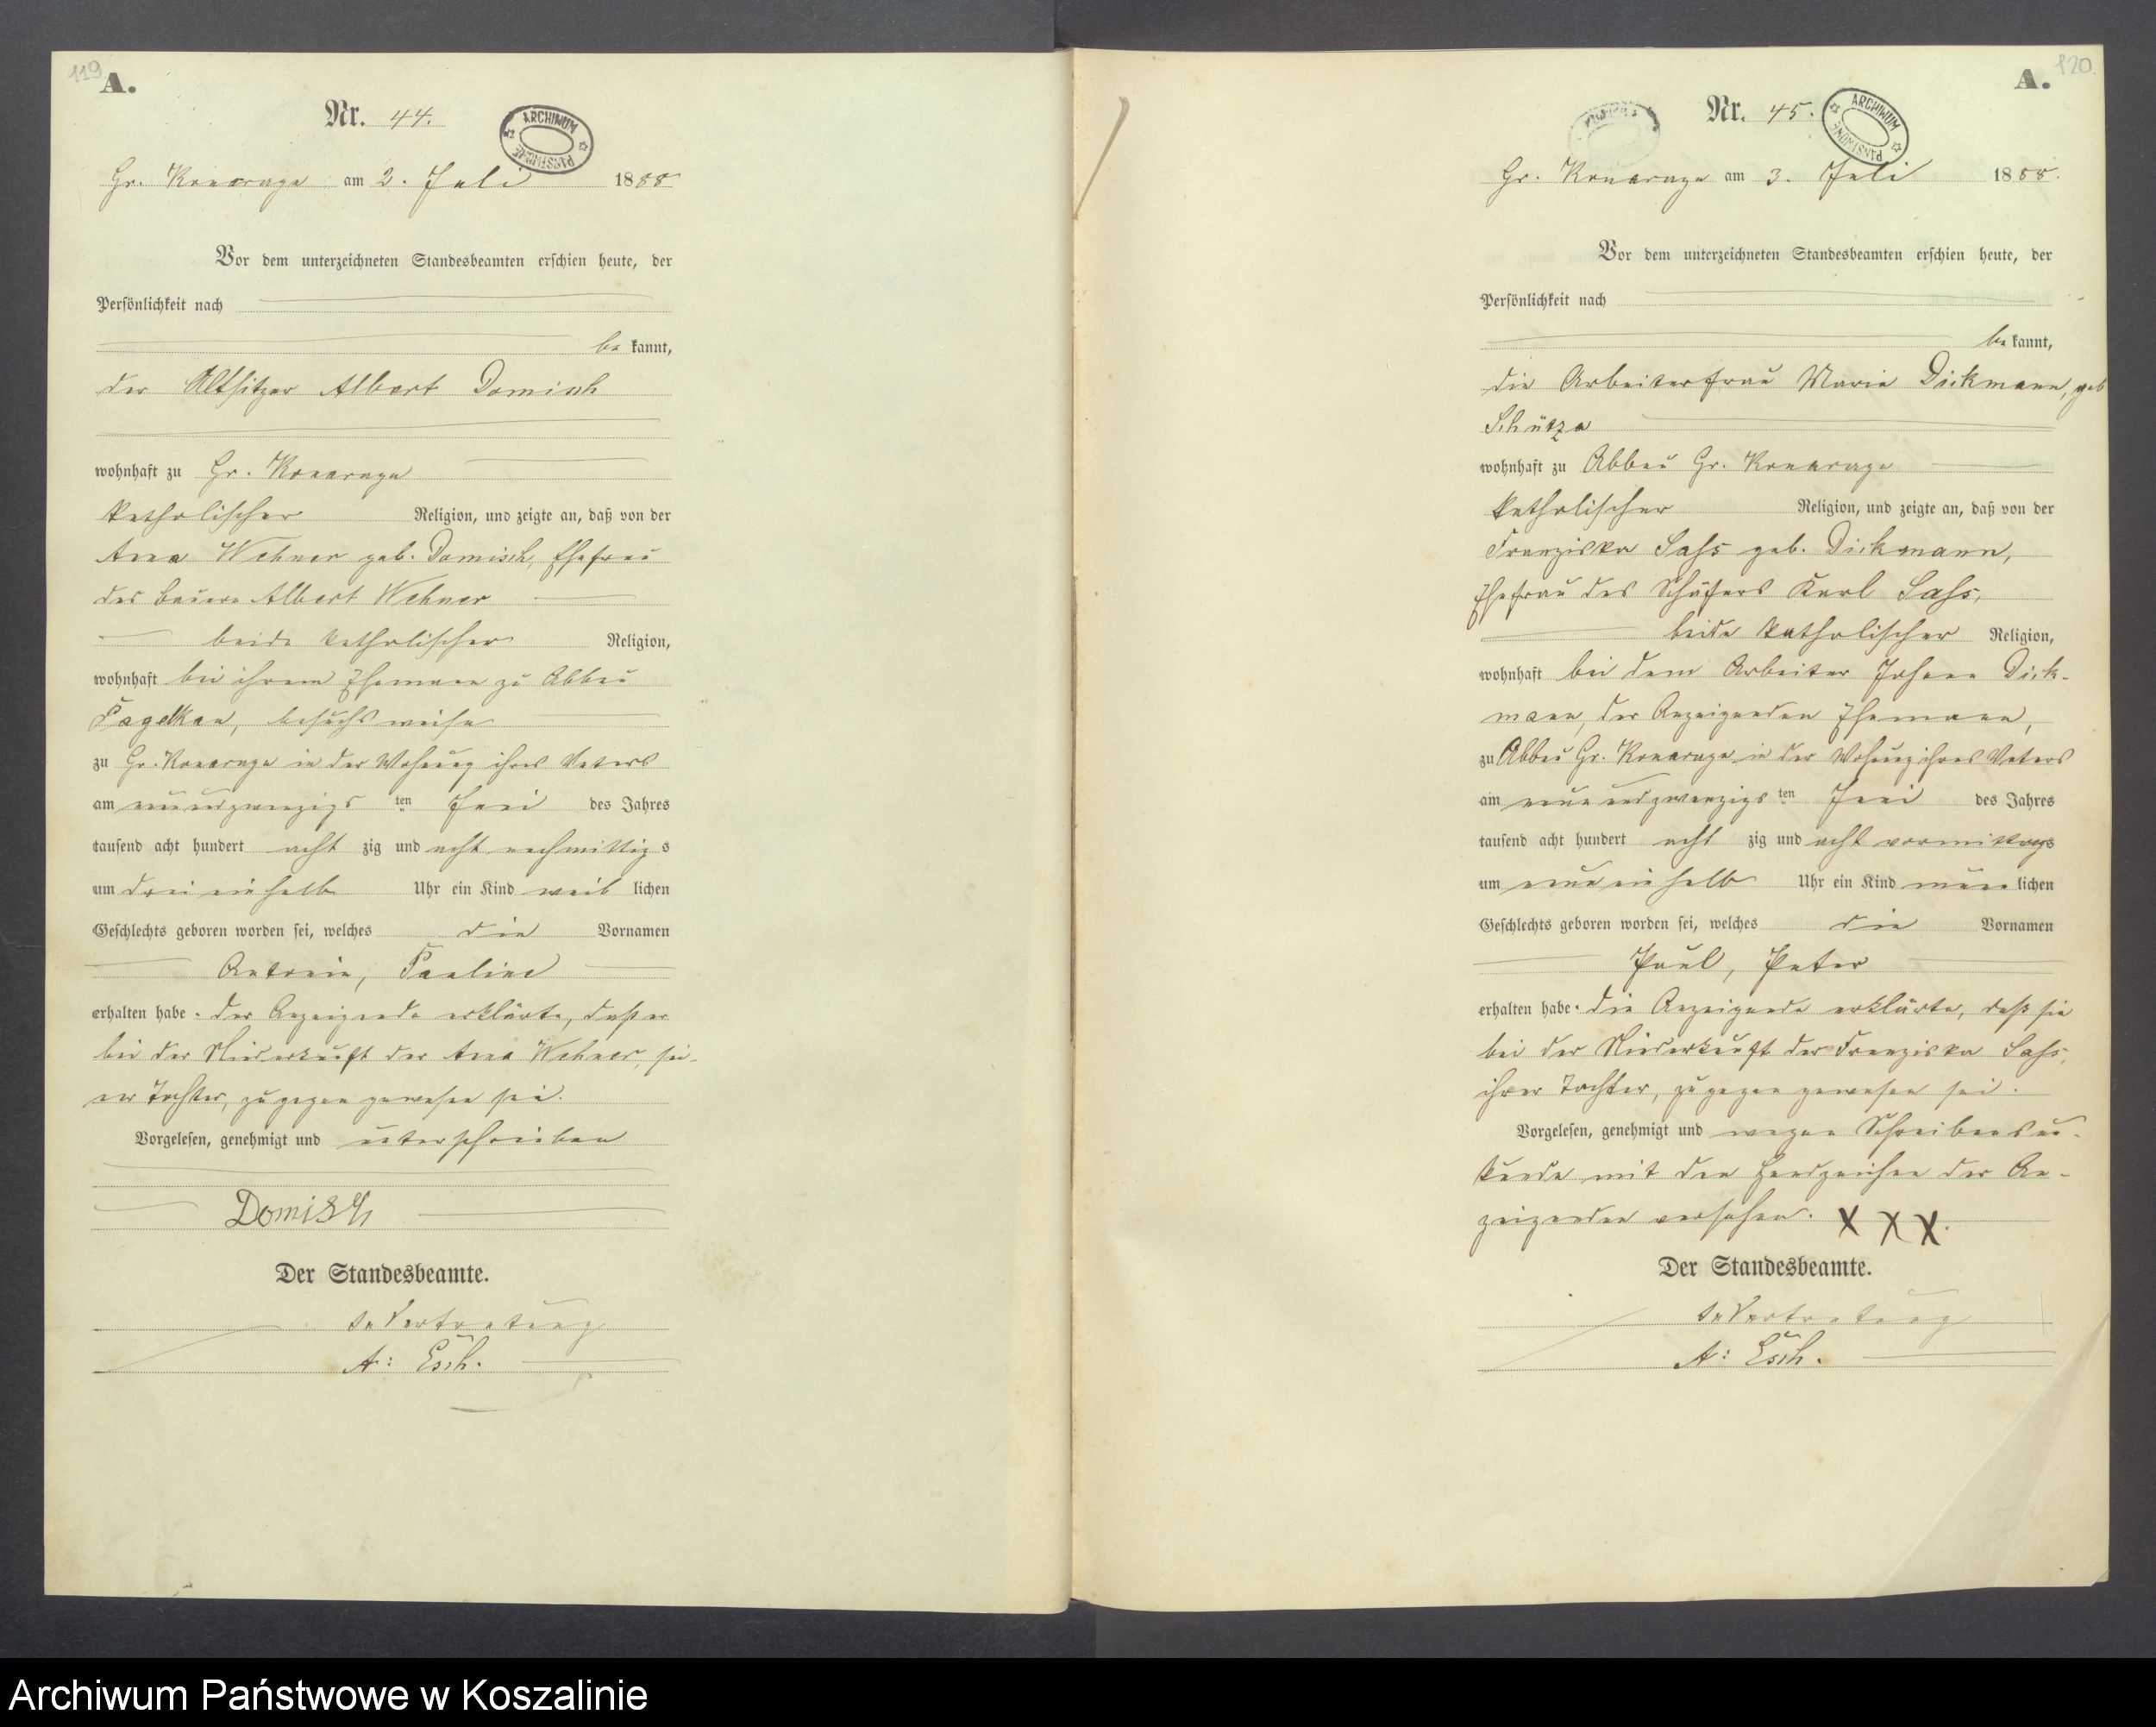 119
A.
Nr. 44.
ARCHIWUM PAŃSTWOWE
Gr. Konarczyn am 2. Juli 1888
Vor dem unterzeichneten Standesbeamten erschien heute, der
Persönlichkeit nach
be kannt,
der Altsitzer Albert Domisch
wohnhaft zu Gr. Konarczyn
katholischer Religion, und zeigte an, daß von der
Anna Wehner geb. Domisch, Ehefrau
des Bauern Albert Wehner
beide katholischer Religion,
wohnhaft bei ihrem Ehemann zu Abbau
besuchsweise
zu Gr. Konarczyn in der Wohnung ihres Vaters
am neunundzwanzigs ten Juni des Jahres
tausend acht hundert acht zig und acht nachmittag s
um drei ein halb Uhr ein Kind weib lichen
Geschlechts geboren worden sei, welches die Vornamen
Antonie, Pauline
erhalten habe. Der Anzeigende erklärte, daß er
bei der Niederkunft der Anna Wehner, sei-
ner Tochter, zugegen gewesen sei.
Vorgelesen, genehmigt und unterschrieben
Domisch
Der Standesbeamte.
In Vertretung
A: Esch.
120
A.
Nr. 45.
ARCHIWUM PAŃSTWOWE
Gr. Konarczyn am 3. Juli 1888.
Vor dem unterzeichneten Standesbeamten erschien heute, der
Persönlichkeit nach
be kannt,
die Arbeiterfrau Marie Dickmann, geb
Schütza
wohnhaft zu Abbau Gr. Konarczyn
katholischer Religion, und zeigte an, daß von der
Franziska Sahs geb. Dickmann,
Ehefrau des Schäfers Karl Sahs,
beide katholischer Religion,
wohnhaft bei dem Arbeiter Johann Dick-
mann, der Anzeigenden Ehemann,
zu Abbau Gr. Konarczyn in der Wohnung ihres Vaters
am neunundzwanzigs ten Juni des Jahres
tausend acht hundert acht zig und acht vormittags
um neun ein halb Uhr ein Kind männ lichen
Geschlechts geboren worden sei, welches die Vornamen
Paul, Peter
erhalten habe. Die Anzeigende erklärte, daß sie
bei der Niederkunft der Franziska Sahs,
ihrer Tochter, zugegen gewesen sei.
Vorgelesen, genehmigt und wegen Schreibensun-
kunde mit den Handzeichen der An-
zeigenden versehen. X X X.
Der Standesbeamte.
In Vertretung
A: Esch.
Archiwum Państwowe w Koszalinie